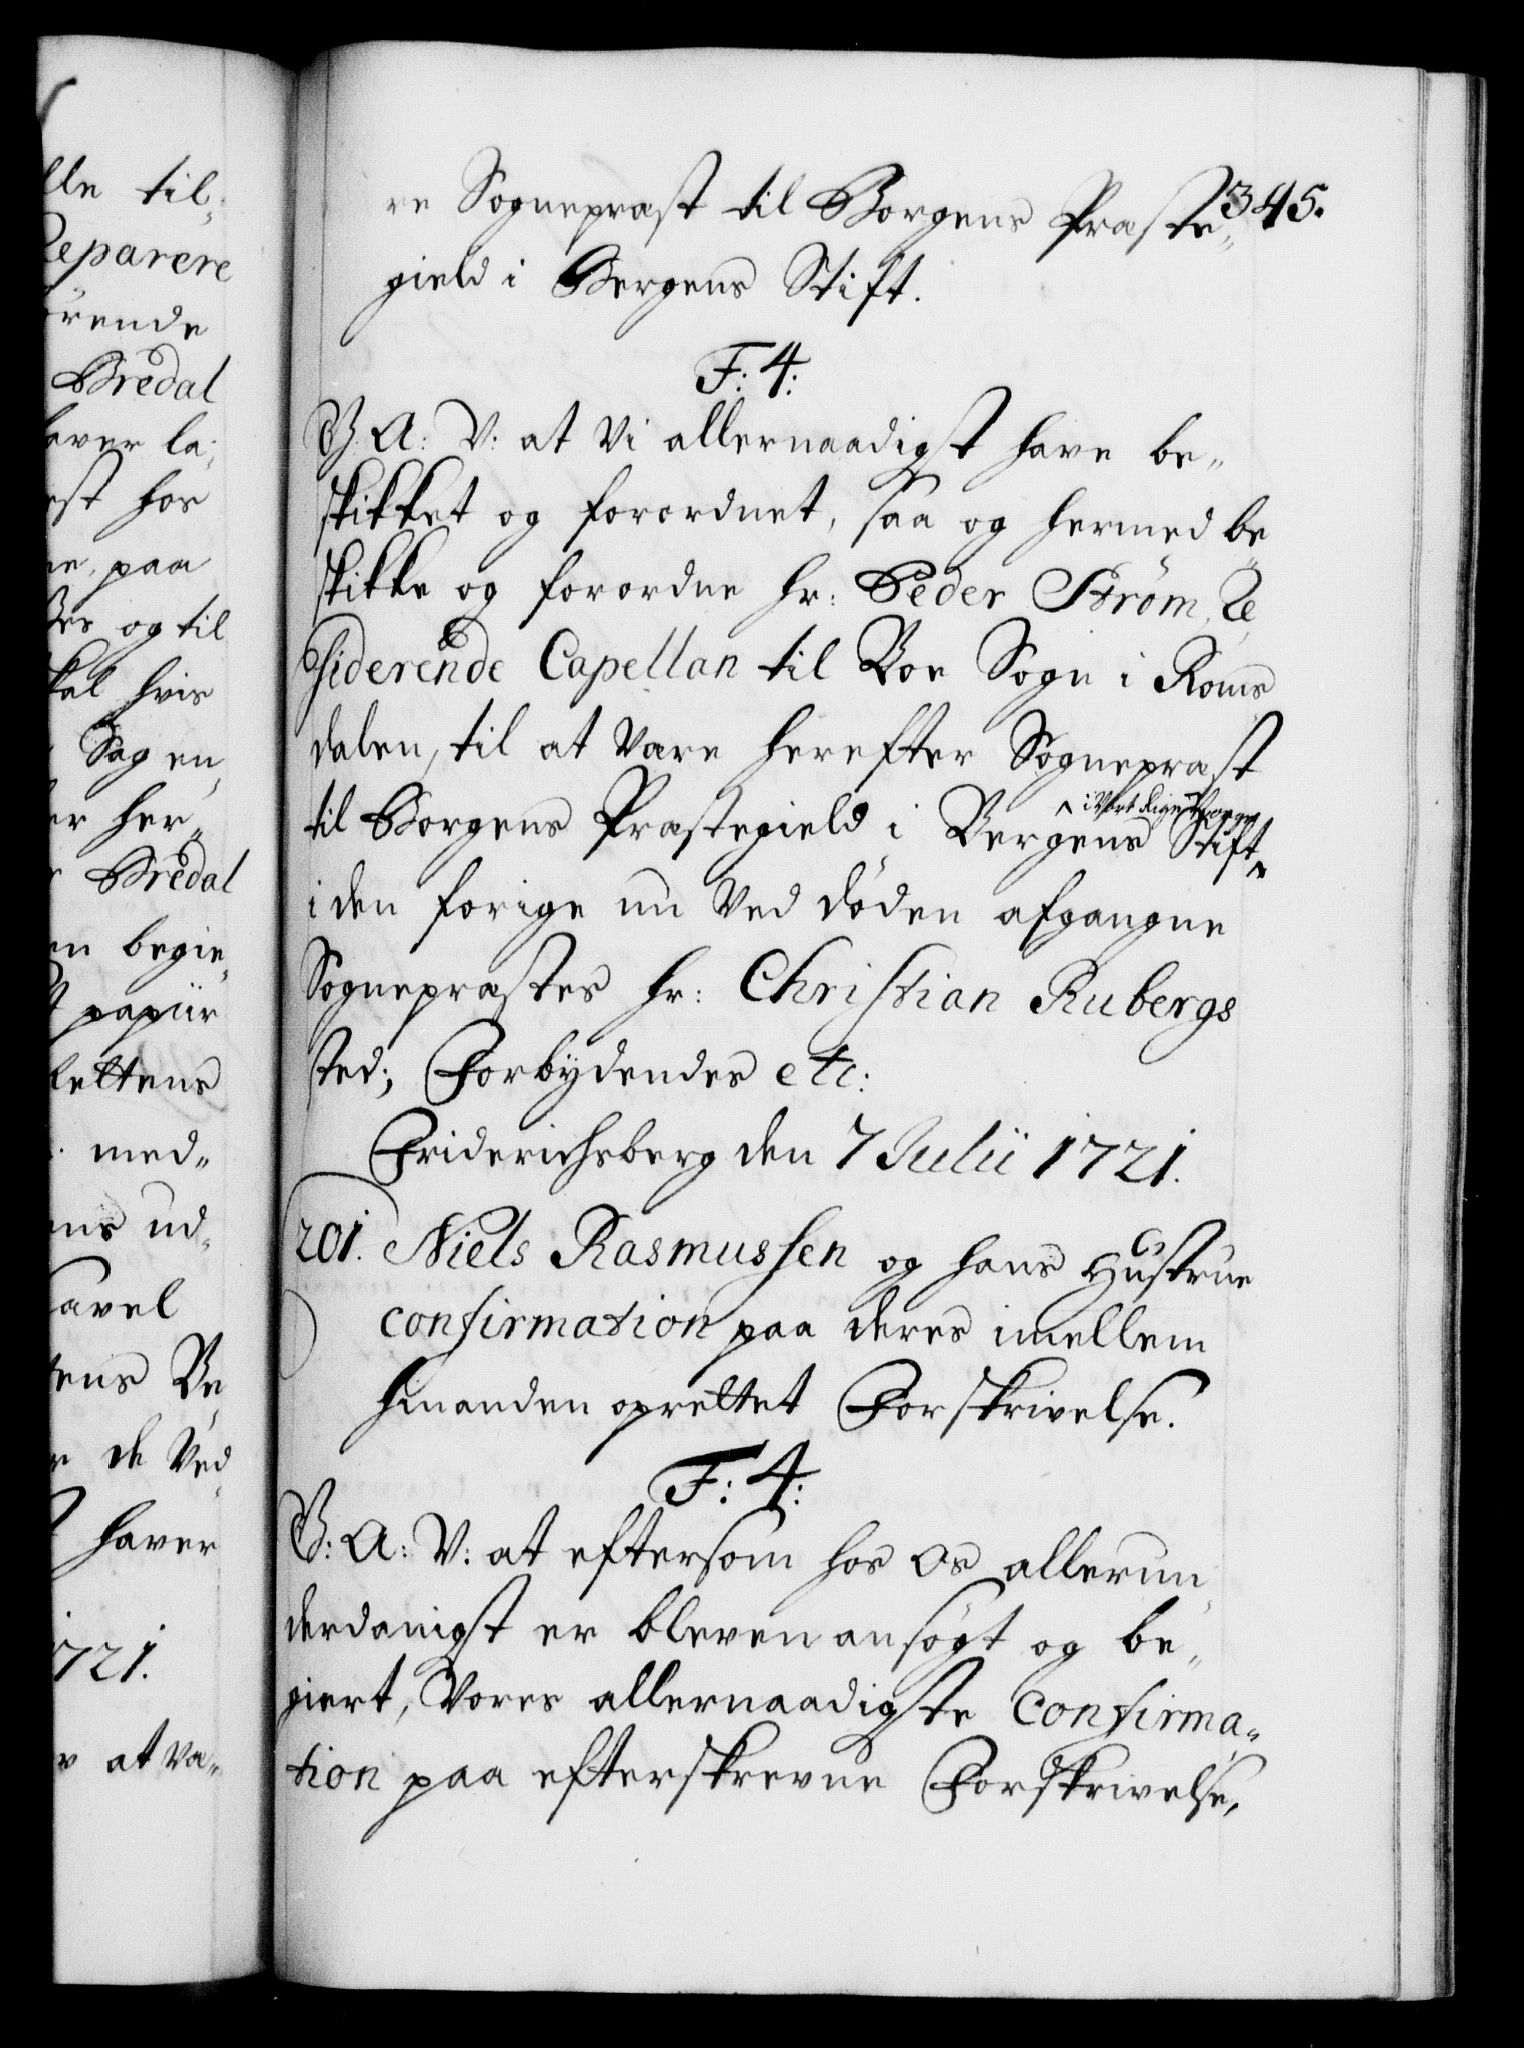 lle til-
Reparere
örende
Bredal
aver la-
est hos
ne, paa
og til
kal hvis
Sag en
er her-
Bredal
en begie-
papiir
lettens
med-
ens ud-
avel
tens Be
de Ved
haver
1721.
at væ-
345.
re Sognepræst til Borgens Præste-
gield i Bergens Stift.
F: 4:
G: A: V: at Vi allernaadigst have be-
skikket og forordnet, saa og hermed be
skikke og forordne Hr: Peder Strøm, Re
siderende Capellan til Boe Sogn i Roms
dalen, til at være herefter Sognepræst
i Vort Rige Norge
til Borgens Præstegield i Bergens Stift
i den forige nu Ved döden afgangne
Sognepræstes Hr: Christian Rubergs
sted; Forbydendes etc:
Friderichsberg den 7 Julii 1721.
201. Niels Rasmussen og hans Hustrue
confirmation paa deres imellem
hinanden oprettet Forskrivelse.
F: 4:
G: A: V: at eftersom hos Os allerun
derdanigst er bleven ansögt og be-
giert, Vores allernaadigste Confirma-
tion paa efterskrevne Forskrivelse,